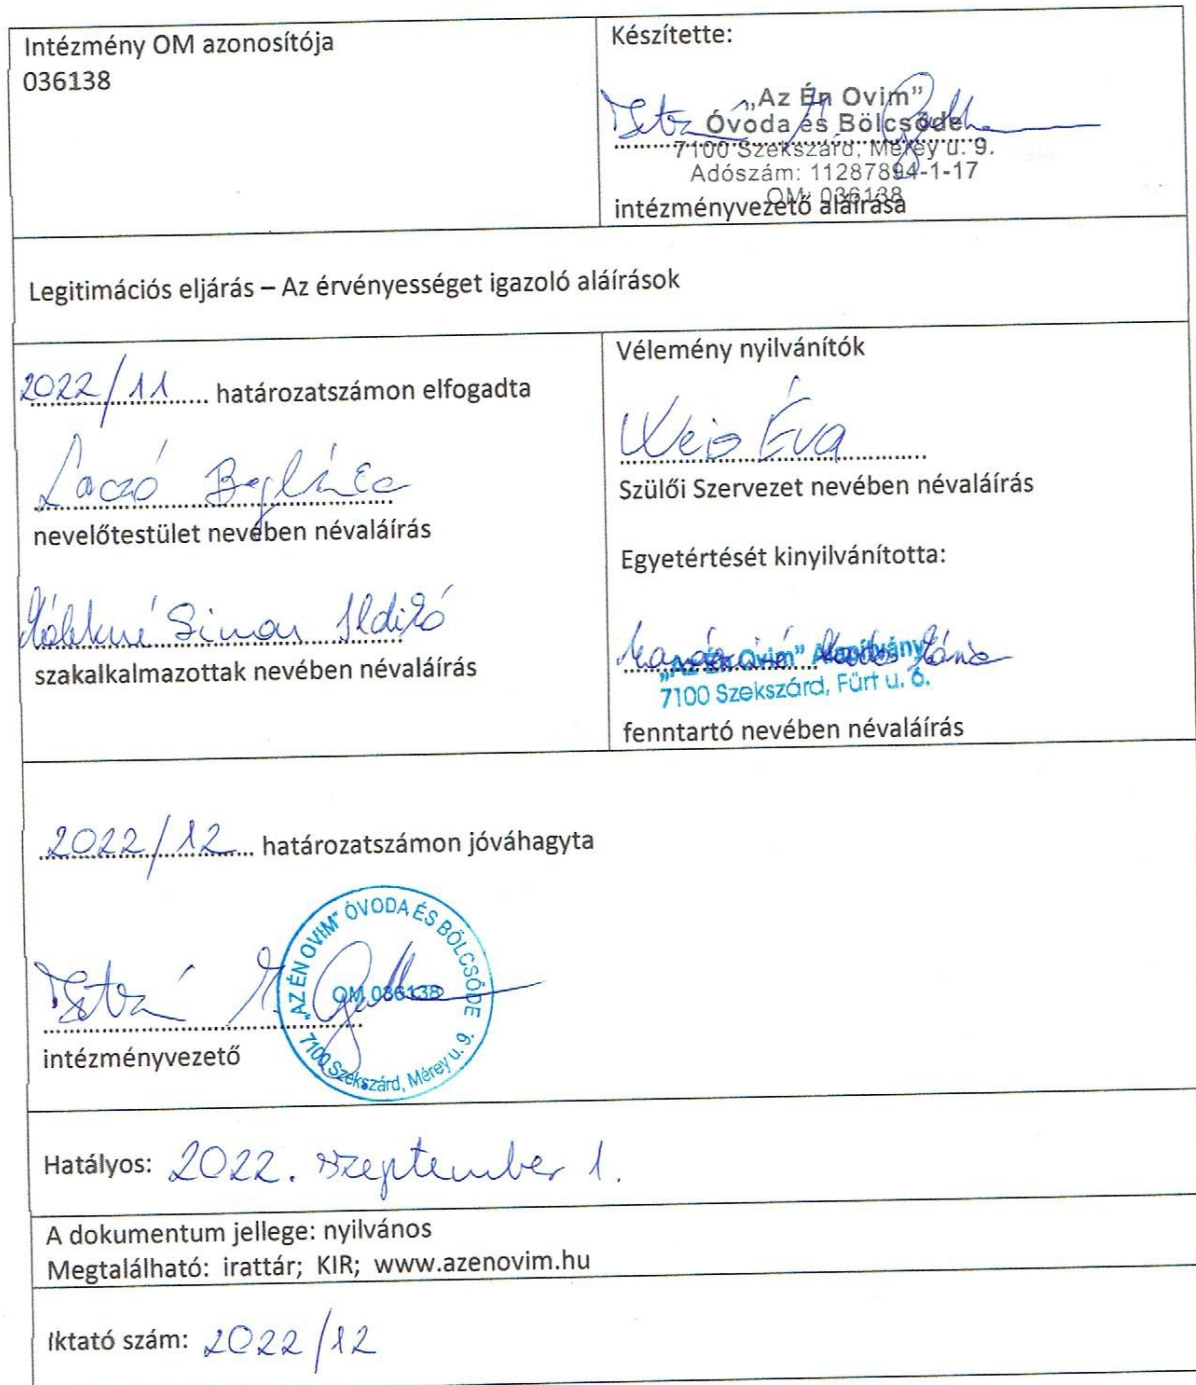 Intézmény OM azonosítója
036138
Készítette:
„Az Én Ovim”
Óvoda és Bölcsőde
7100 Szekszárd, Mérey u. 9.
Adószám: 11287894-1-17
OM: 036138
intézményvezető aláírása
Legitimációs eljárás – Az érvényességet igazoló aláírások
2022/11 határozatszámon elfogadta
Laczó Boglárka
nevelőtestület nevében névaláírás
Simon Ildikó
szakalkalmazottak nevében névaláírás
Vélemény nyilvánítók
Weis Éva
Szülői Szervezet nevében névaláírás
Egyetértését kinyilvánította:
„Az Én Ovim” Alapítvány
7100 Szekszárd, Fürt u. 6.
fenntartó nevében névaláírás
2022/12 határozatszámon jóváhagyta
„AZ ÉN OVIM” ÓVODA ÉS BÖLCSŐDE
OM 036138
7100 Szekszárd, Mérey u. 9.
intézményvezető
Hatályos: 2022. szeptember 1.
A dokumentum jellege: nyilvános
Megtalálható: irattár; KIR; www.azenovim.hu
Iktató szám: 2022/12